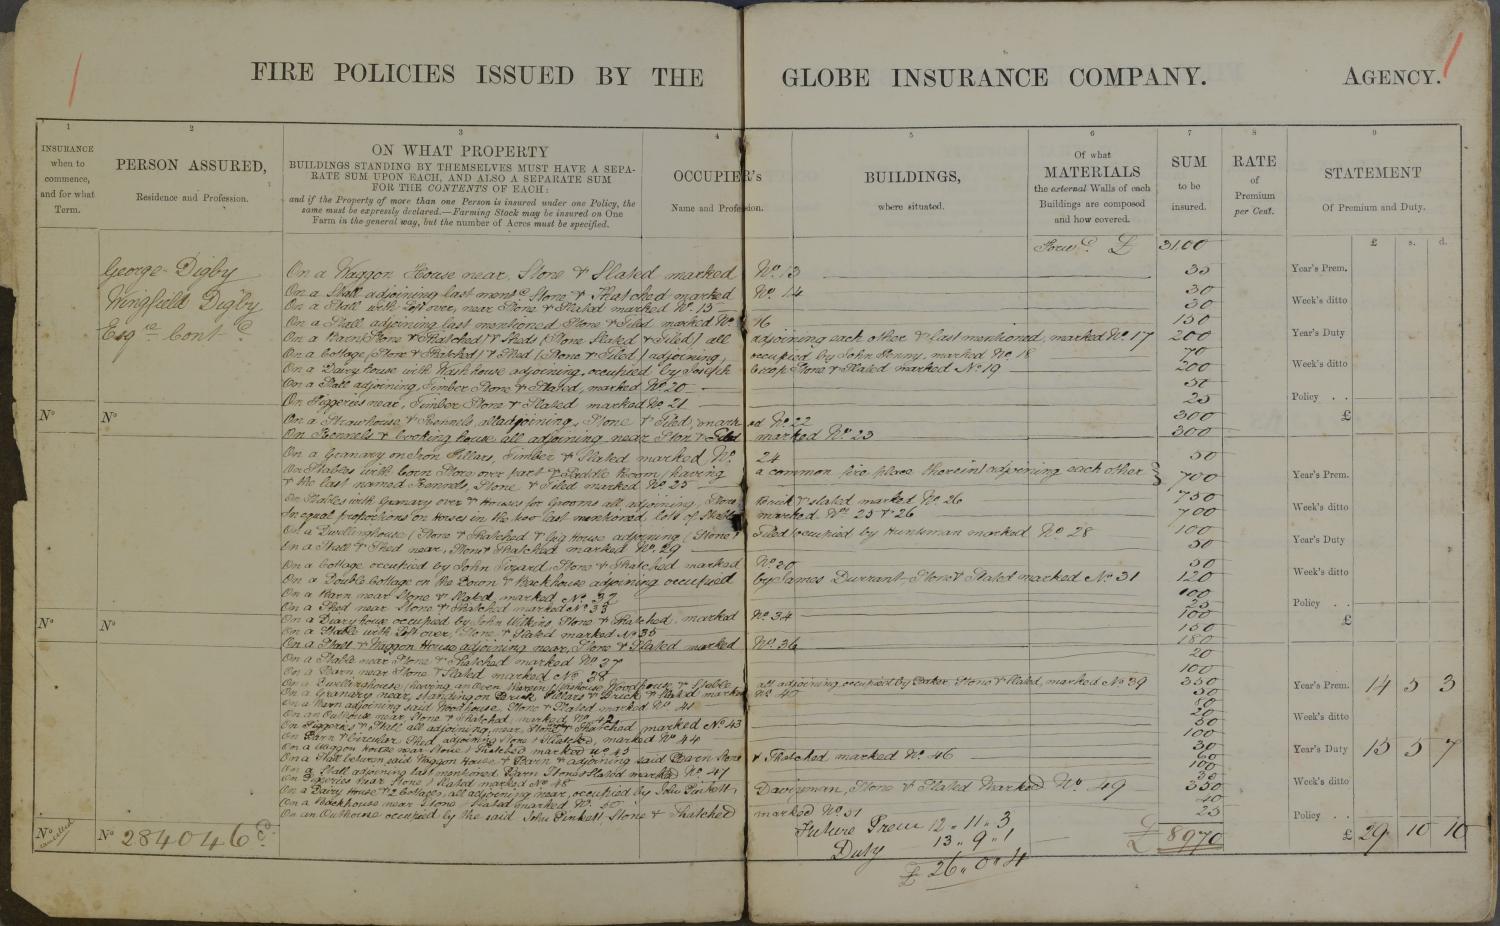 FIRE POLICIES ISSUED BY THE GLOBE INSURANCE COMPANY. AGENCY.
1 2 3 4 5 6 7 8 9
INSURANCE when to commence, and for what Term.
PERSON ASSURED, Residence and Profession.
ON WHAT PROPERTY
BUILDINGS STANDING BY THEMSELVES MUST HAVE A SEPA-
RATE SUM UPON EACH, AND ALSO A SEPARATE SUM
FOR THE CONTENTS OF EACH:
and if the Property of more than one Person is insured under one Policy, the
same must be expressly declared.—Farming Stock may be insured on One
Farm in the general way, but the number of Acres must be specified.
OCCUPIER's Name and Profession.
BUILDINGS, where situated.
Of what MATERIALS the external Walls of each Buildings are composed and how covered.
SUM to be insured.
RATE of Premium per Cent.
STATEMENT Of Premium and Duty.
£ s. d.
Forwd. £ 3100
George Digby
Wingfield Digby
Esqre Contd
On a Waggon House near, Stone & Slated marked No. 13 35
On a Stall adjoining last mentd Stone & Thatched marked No. 14 30
On a Stall with Loft over, near Stone & Slated marked No. 15 30
On a Stall adjoining last mentioned Stone & Tiled marked No. 16 150
On a Barn (Stone & Thatched) & Sheds (Stone Slated & Tiled) all adjoining each other & last mentioned, marked No. 17 200
On a Cottage (Stone & Thatched) & Shed (Stone & Tiled) adjoining, occupied by John Penny, marked No. 18 70
On a Dairy house with Washhouse adjoining, occupied by Joseph Stone & Slated marked No. 19 200
On a Stall adjoining, Timber Stone & Slated, marked No. 20 50
On Piggeries near, Timber Stone & Slated marked No. 21 25
On a Strawhouse & Kennels, all adjoining, Stone & Tiled, marked No. 22 300
On Kennels & Cooking house all adjoining near Stone & Tiled marked No. 23 300
On a Granary on Iron Pillars, Timber & Slated marked No. 24 50
On Stables with Corn Store over part & Saddle Room (having a common fire place therein) adjoining each other
& the last named Kennels, Stone & Tiled marked No. 25 700
On Stables with Granary over & Houses for Grooms all adjoining, Stone Brick & slated marked No. 26 750
In equal proportions on Horses in the two last mentioned lots of Stables marked Nos. 25 & 26 700
On a Dwellinghouse (Stone & Thatched) & Pig House adjoining (Stone & Tiled) occupied by Huntsman marked No. 28 100
On a Stall & Shed near, Stone & Thatched marked No. 29 50
On a Cottage occupied by John Stone & Thatched marked No. 30 50
On a Double Cottage on the Down & Backhouse adjoining occupied by James Durrant Stone & Slated marked No. 31 120
On a Barn near Stone & Slated, marked No. 32 100
On a Shed near Stone & Thatched marked No. 33 25
On a Dairy house occupied by John Wilkins, Stone & Thatched, marked No. 34 100
On a Stable with Loft over, Stone & Slated marked No. 35 150
On a Stall & Waggon House adjoining near, Stone & Slated marked No. 36 180
On a Stable near Stone & Thatched marked No. 37 20
On a Barn near Stone & Slated marked No. 38 100
On a Dwellinghouse (having an Oven therein) Washhouse Woodhouse & Stable, all adjoining occupied by Baker Stone & Slated, marked No. 39 350
On a Granary near, standing on Brick Pillars & Brick & Slated marked No. 40 50
On a Barn adjoining said Woodhouse, Stone & Slated marked No. 41 80
On an Outhouse near Stone & Thatched, marked No. 42 20
On Piggeries & Stall all adjoining, near, Stone & Thatched marked No. 43 50
On Barn & Circular Shed adjoining Stone & Thatched, marked No. 44 100
On a Waggon House near Stone & Thatched marked No. 45 30
On a Stall between said Waggon House & Barn & adjoining said Barn Stone & Thatched marked No. 46 60
On a Stall adjoining last mentioned Barn Stone & Slated marked No. 47 100
On Piggeries near Stone & Slated marked No. 48 30
On a Dairy House & 2 Cottages, all adjoining near, occupied by John Pinkett, Dairyman, Stone & Slated Marked No. 49 350
On a Backhouse near Stone & Slated marked No. 50 40
On an Outhouse occupied by the said John Pinkett Stone & Thatched marked No. 51 25
£ 8970
Future Prem 12 .. 11 .. 3
Duty 13 .. 9 .. 1
£ 26 .. 0 .. 4
No No
No No
No cancelled
No 284046 Cd.
Year's Prem.
Week's ditto
Year's Duty
Week's ditto
Policy . .
£
Year's Prem.
Week's ditto
Year's Duty
Week's ditto
Policy . .
£
Year's Prem. 14 5 3
Week's ditto
Year's Duty 15 5 7
Week's ditto
Policy . .
£ 29 10 10